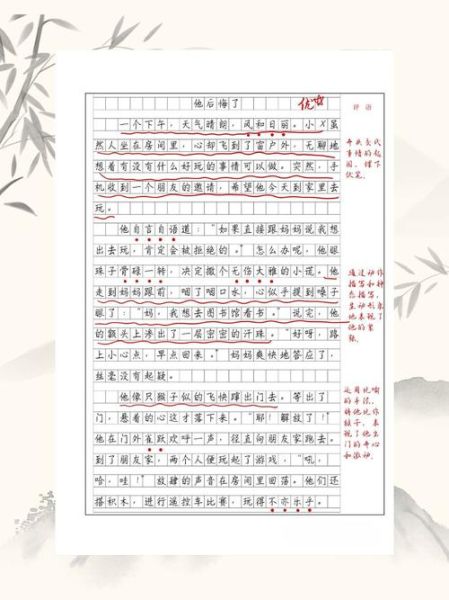 他后悔了
优
评语
一个下午，天气晴朗，风和日丽。小X虽
然人坐在房间里，心却飞到了窗户外，无聊地
想着有没有什么好玩的事情可以做。突然，手
机收到一个朋友的邀请，希望他今天到家里去
玩。
他自言自语道：“如果直接跟妈妈说我想
出去玩，肯定会被拒绝的。”怎么办呢，他眼
珠子骨碌一转，决定撒个无伤大雅的小谎。他
走到妈妈跟前，咽了咽口水，心似乎提到嗓子
眼了：“妈，我想去图书馆看书。”说完，他
的额头上渗出了一层密密的汗珠。“好呀，路
上小心点，早点回来。”妈妈爽快地答应了，
丝毫没有起疑。
他像只猴子似的飞快蹿出门去。等出了
门，悬着的心这才落下来。“耶！解放了！”
他在门外雀跃欢呼一声，径直向朋友家跑去。
到了朋友家，两个人便玩起了游戏，“吼，
哈，哇！”放肆的声音在房间里回荡。他们还
搭积木，进行遥控车比赛，玩得不亦乐乎。
开头交代
事情的起
因，埋下
伏笔。
通过动作
描写和神
态描写，
生动形象
地表现了
他的紧
张
运用比喻
的手法，
将他比作
猴子，表
现了他出
门的开心
和激动。